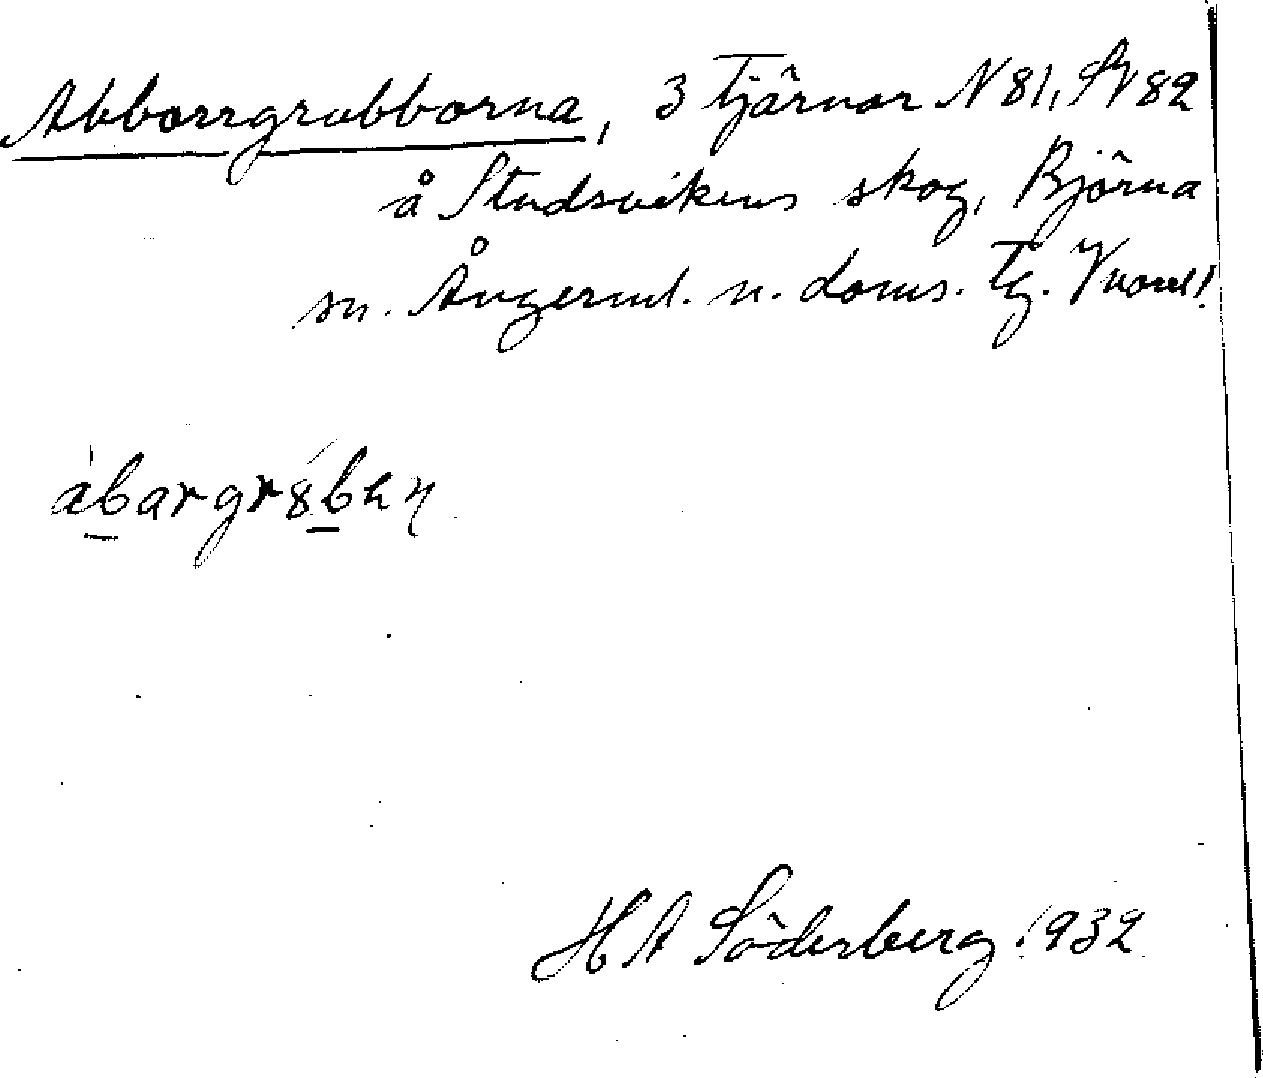 Abborrgrubborna, 3 tjärnar N 81, SV 82
å Studsvikens skog, Björna
sn. Ångerml. n. doms. tg.
àbargr8́ban
H A Söderberg 1932